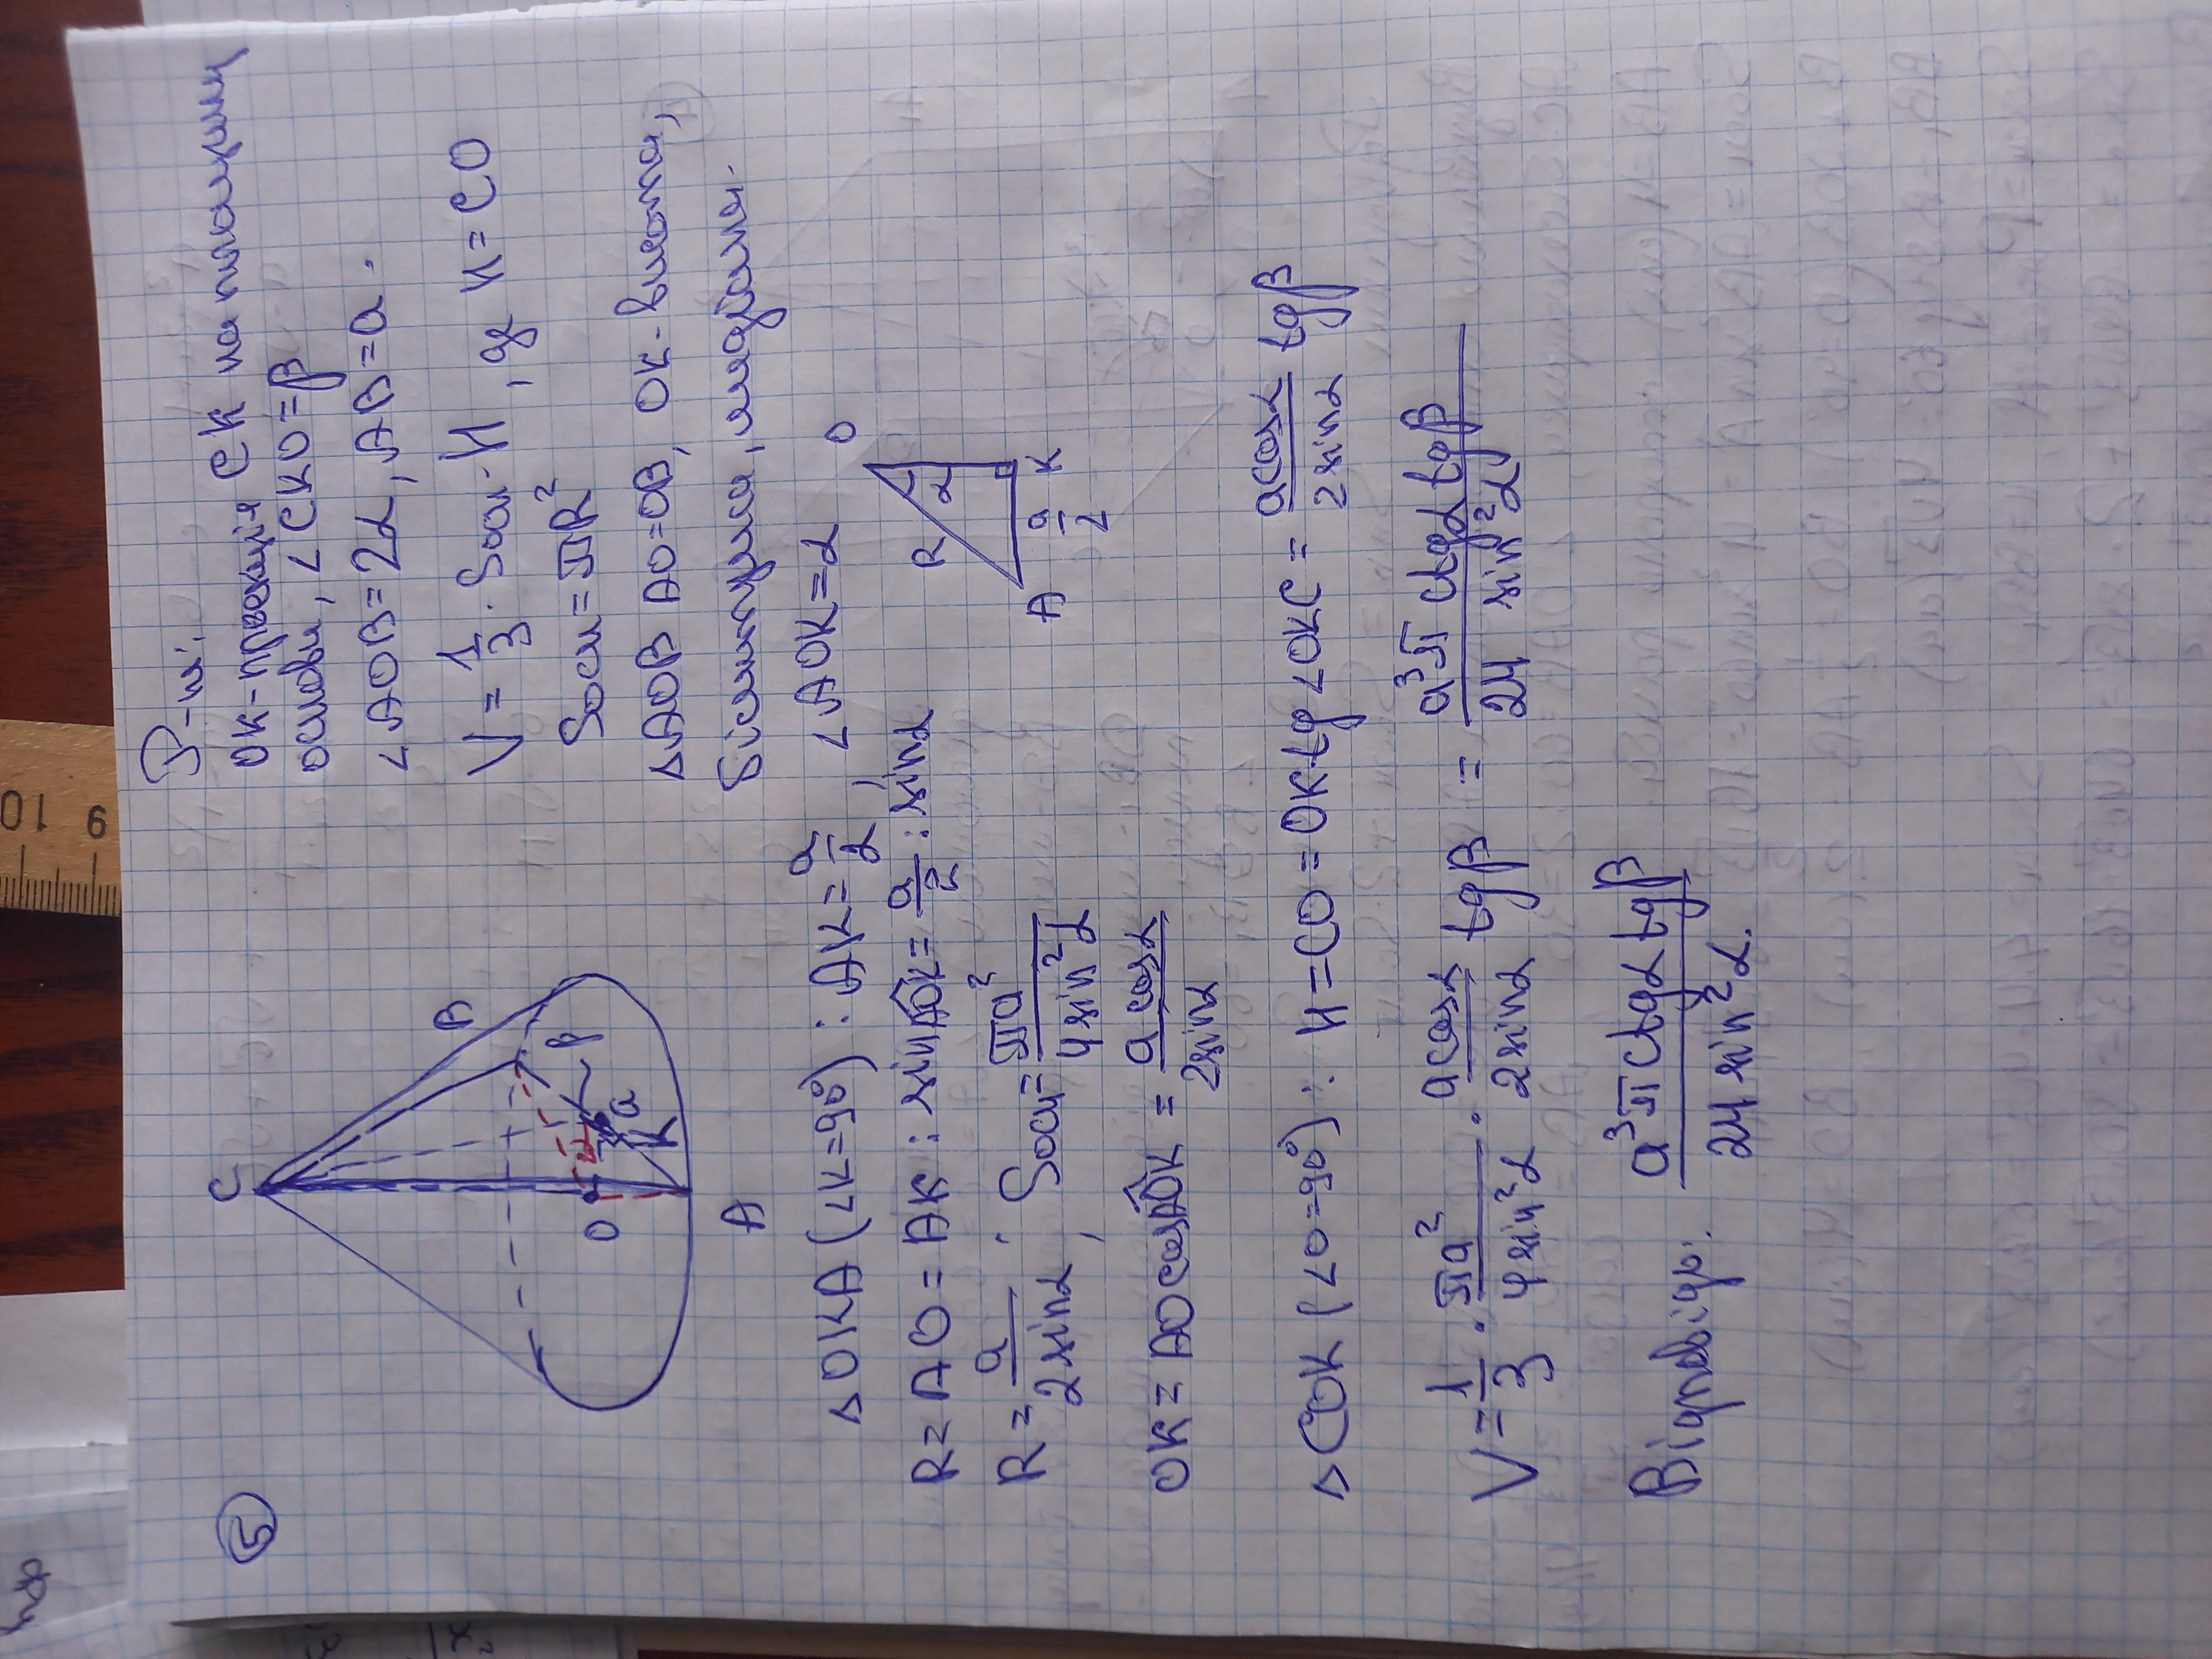 5
Р-ня:
C
B
O
2α
β
a
K
A
OK-проекція CK на площину
основи, ∠CKO=β
∠AOB=2α, AB=a.
V = 1/3 · Sосн · H, де H = CO
Sосн = πR²
△AOB AO=OB, OK-висота,
бісектриса, медіана.
∠AOK=α
O
R
α
A
a/2
K
△OKA (∠K=90°): AK = a/2,
R = AO = AK : sin AÔK = a/2 : sinα
R = a/(2sinα). Sосн = πa²/(4sin²α),
OK = AO cos AÔK = a cosα/(2sinα)
△COK (∠O=90°): H=CO=OK tg∠OKC = a cosα/(2sinα) tgβ
V = 1/3 · πa²/(4sin²α) · a cosα/(2sinα) tgβ = a³π ctgα tgβ/(24 sin²α)
Відповідь: a³π ctgα tgβ/(24 sin²α).
9 10